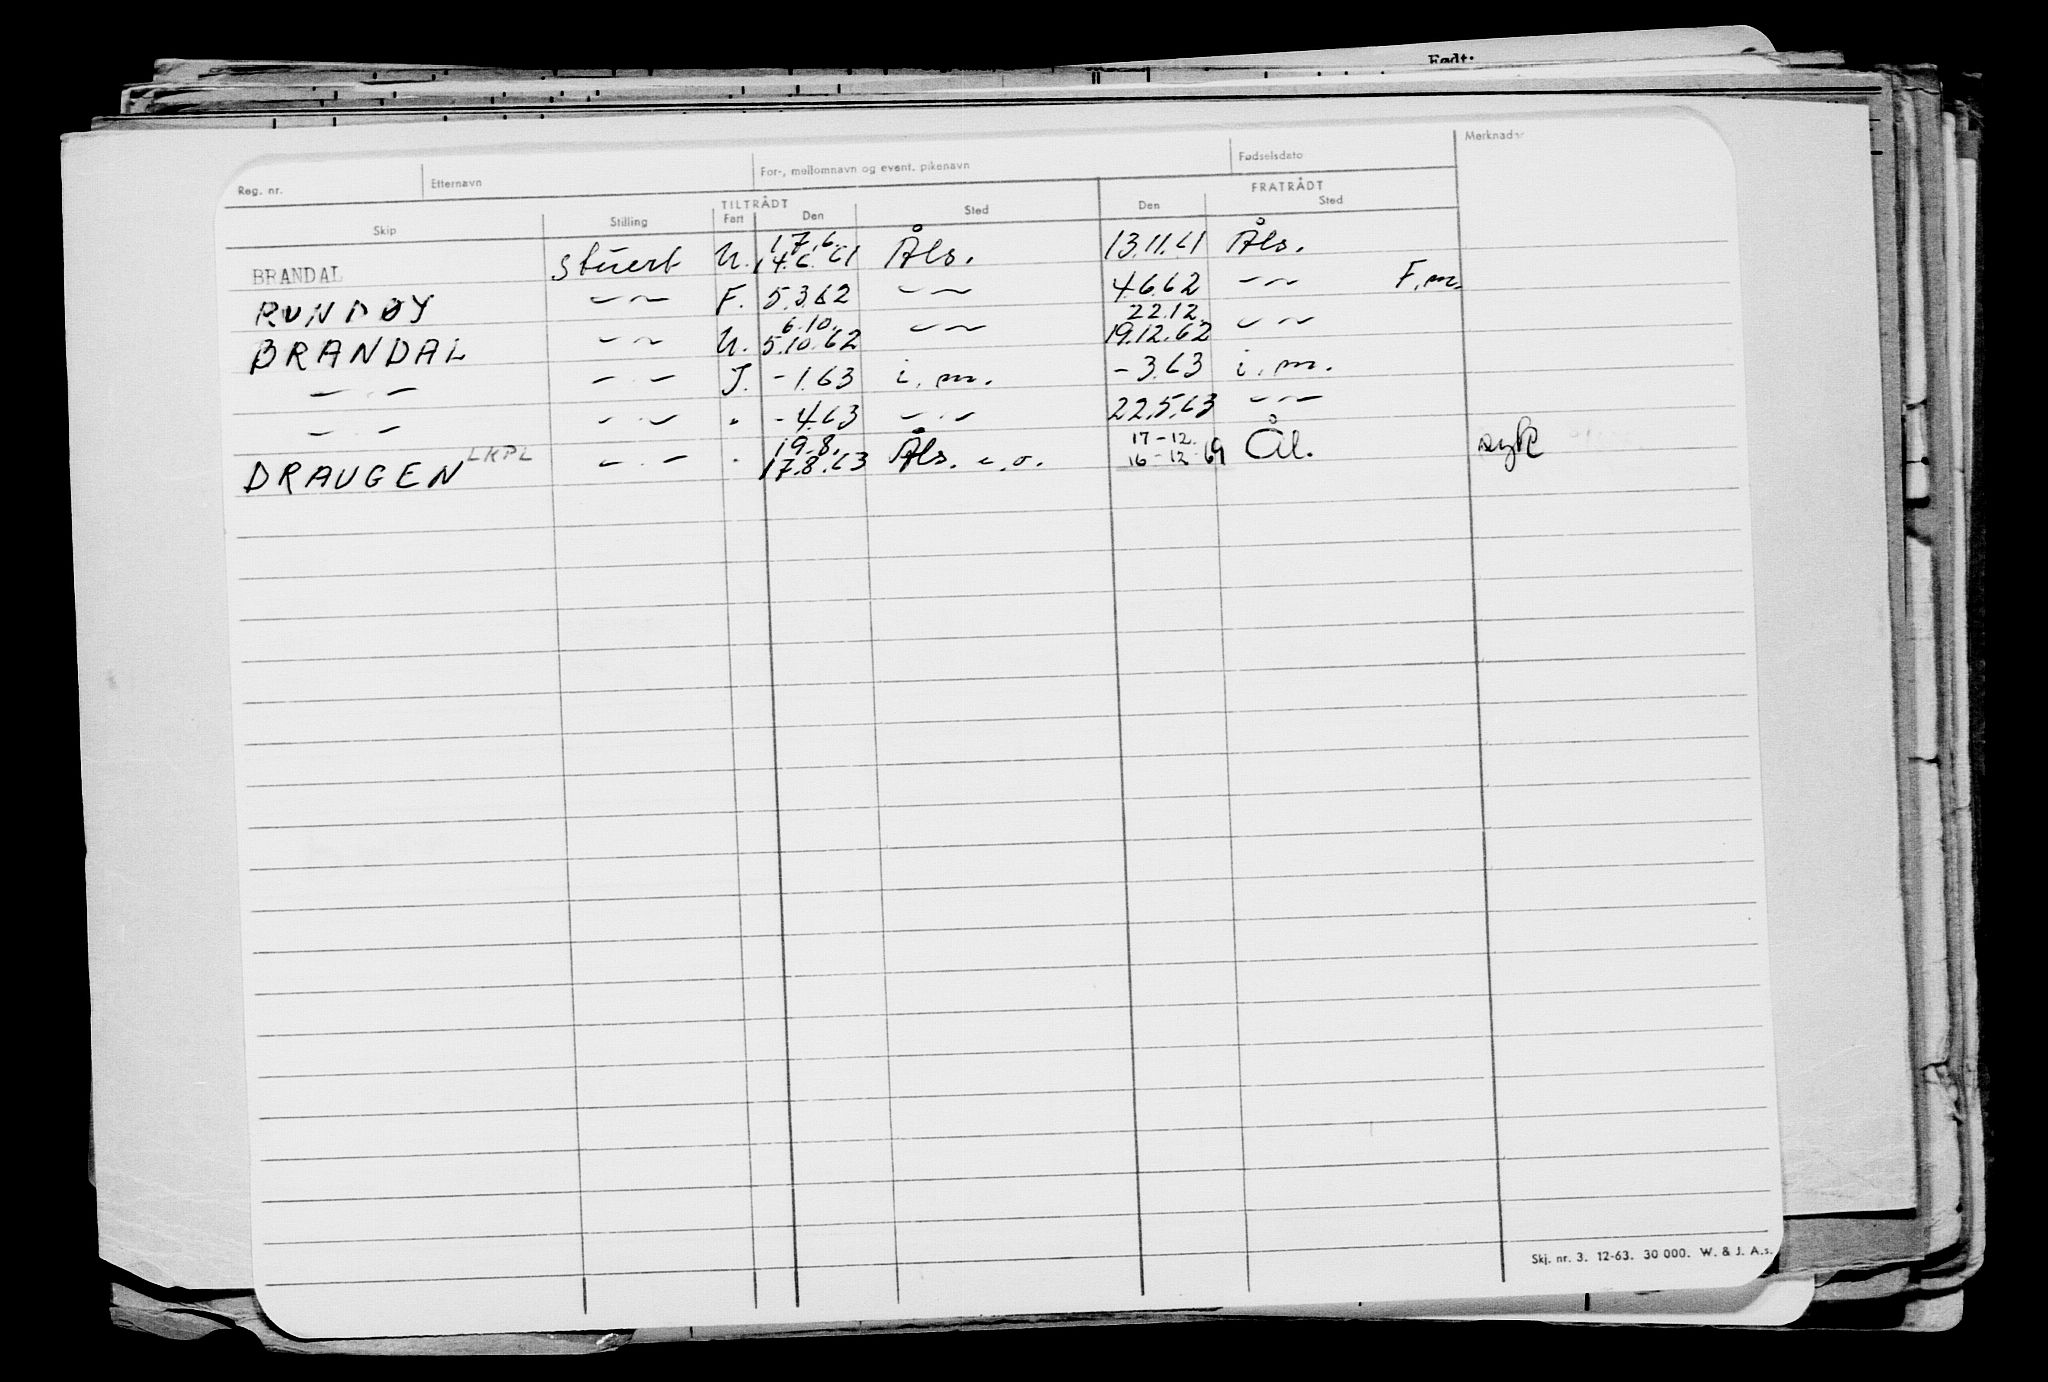 Født:
Reg. nr. Etternavn For-, mellomnavn og event. pikenavn Fødselsdato Merknader
TILTRÅDT FRATRÅDT
Skip Stilling Fart Den Sted Den Sted
17.6.
BRANDAL Stuert U. 14.6.61 Åls. 13.11.61 Åls.
RUNDØY -"- F. 5.3.62 -"- 4.6.62 -"- F.m.
6.10. 22.12.
BRANDAL -"- U. 5.10.62 -"- 19.12.62 -"-
-"- -"- J. -1.63 i.m. -3.63 i.m.
-"- -"- " -4.63 -"- 22.5.63 -"-
19.8. 17-12.
DRAUGEN LKPL -"- " 17.8.63 Åls. e.o. 16-12-69 Ål. syk
Skj. nr. 3. 12-63. 30 000. W. & J. A.s.